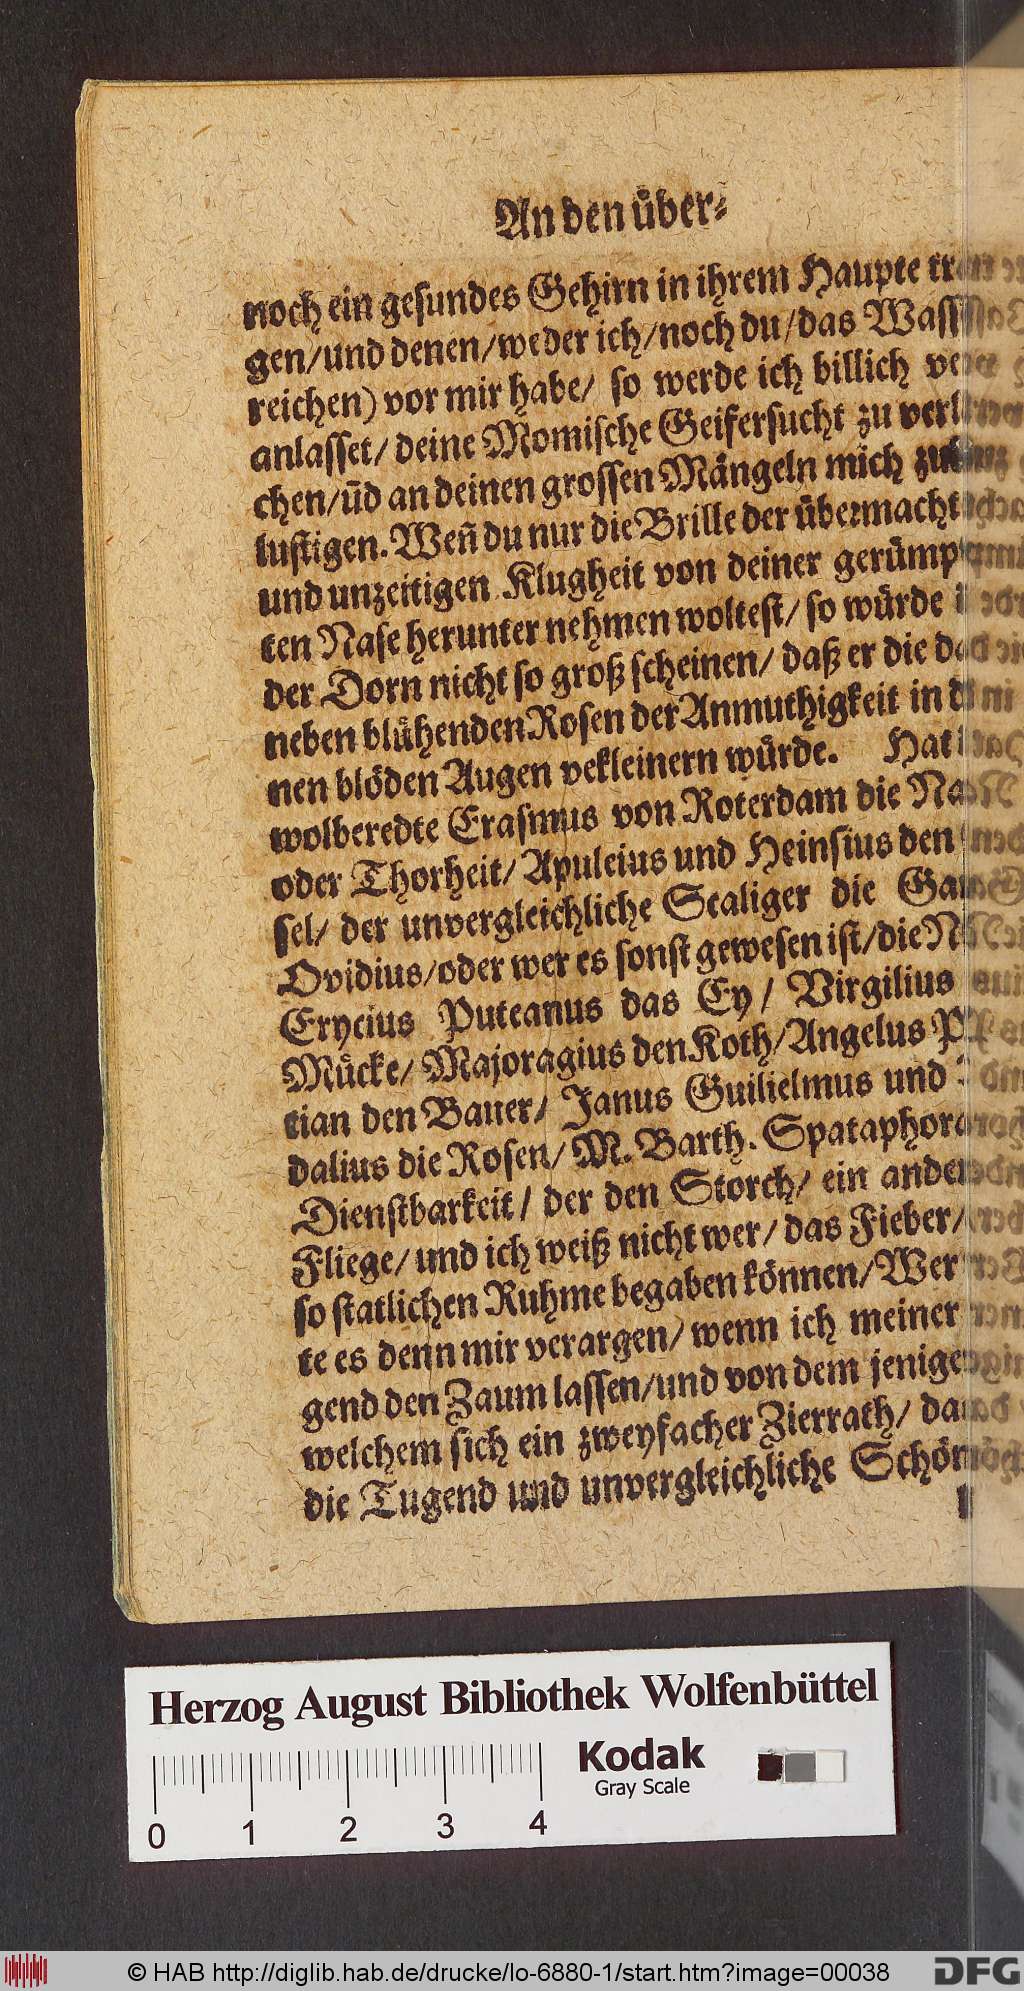 An den über-
noch ein gesundes Gehirn in ihrem Haupte
gen/und denen/weder ich/noch du/das
reichen) vor mir habe/ so werde ich billich
anlasset/ deine Momische Geifersucht zu
chen/uñd an deinen grossen Mängeln mich
lustigen. Weñ du nur die Brille der
und unzeitigen Klugheit von deiner
ten Nase herunter nehmen woltest/ so würde
der Dorn nicht so groß scheinen/ daß er die
neben blühenden Rosen der Anmuthigkeit in
nen blöden Augen vekleinern würde. Hat
wolberedte Erasmus von Roterdam die
oder Thorheit/ Apuleius und Heinsius den
sel/ der unvergleichliche Scaliger die
Ovidius/oder wer es sonst gewesen ist/die
Erycius Puteanus das Ey/ Virgilius
Mücke/ Majoragius den Koth/Angelus
tian den Bauer/ Janus Guilielmus und
dalius die Rosen/ M. Barth.
Dienstbarkeit/ der den Storch/ ein
Fliege/ und ich weiß nicht wer/ das Fieber/
so statlichen Ruhme begaben können/Wer
te es denn mir verargen/ wenn ich meiner
gend den Zaum lassen/und von dem
welchem sich ein zweyfacher Zierrath/
die Tugend und unvergleichliche
Herzog August Bibliothek Wolfenbüttel
Kodak
Gray Scale
0 1 2 3 4
© HAB http://diglib.hab.de/drucke/lo-6880-1/start.htm?image=00038
DFG